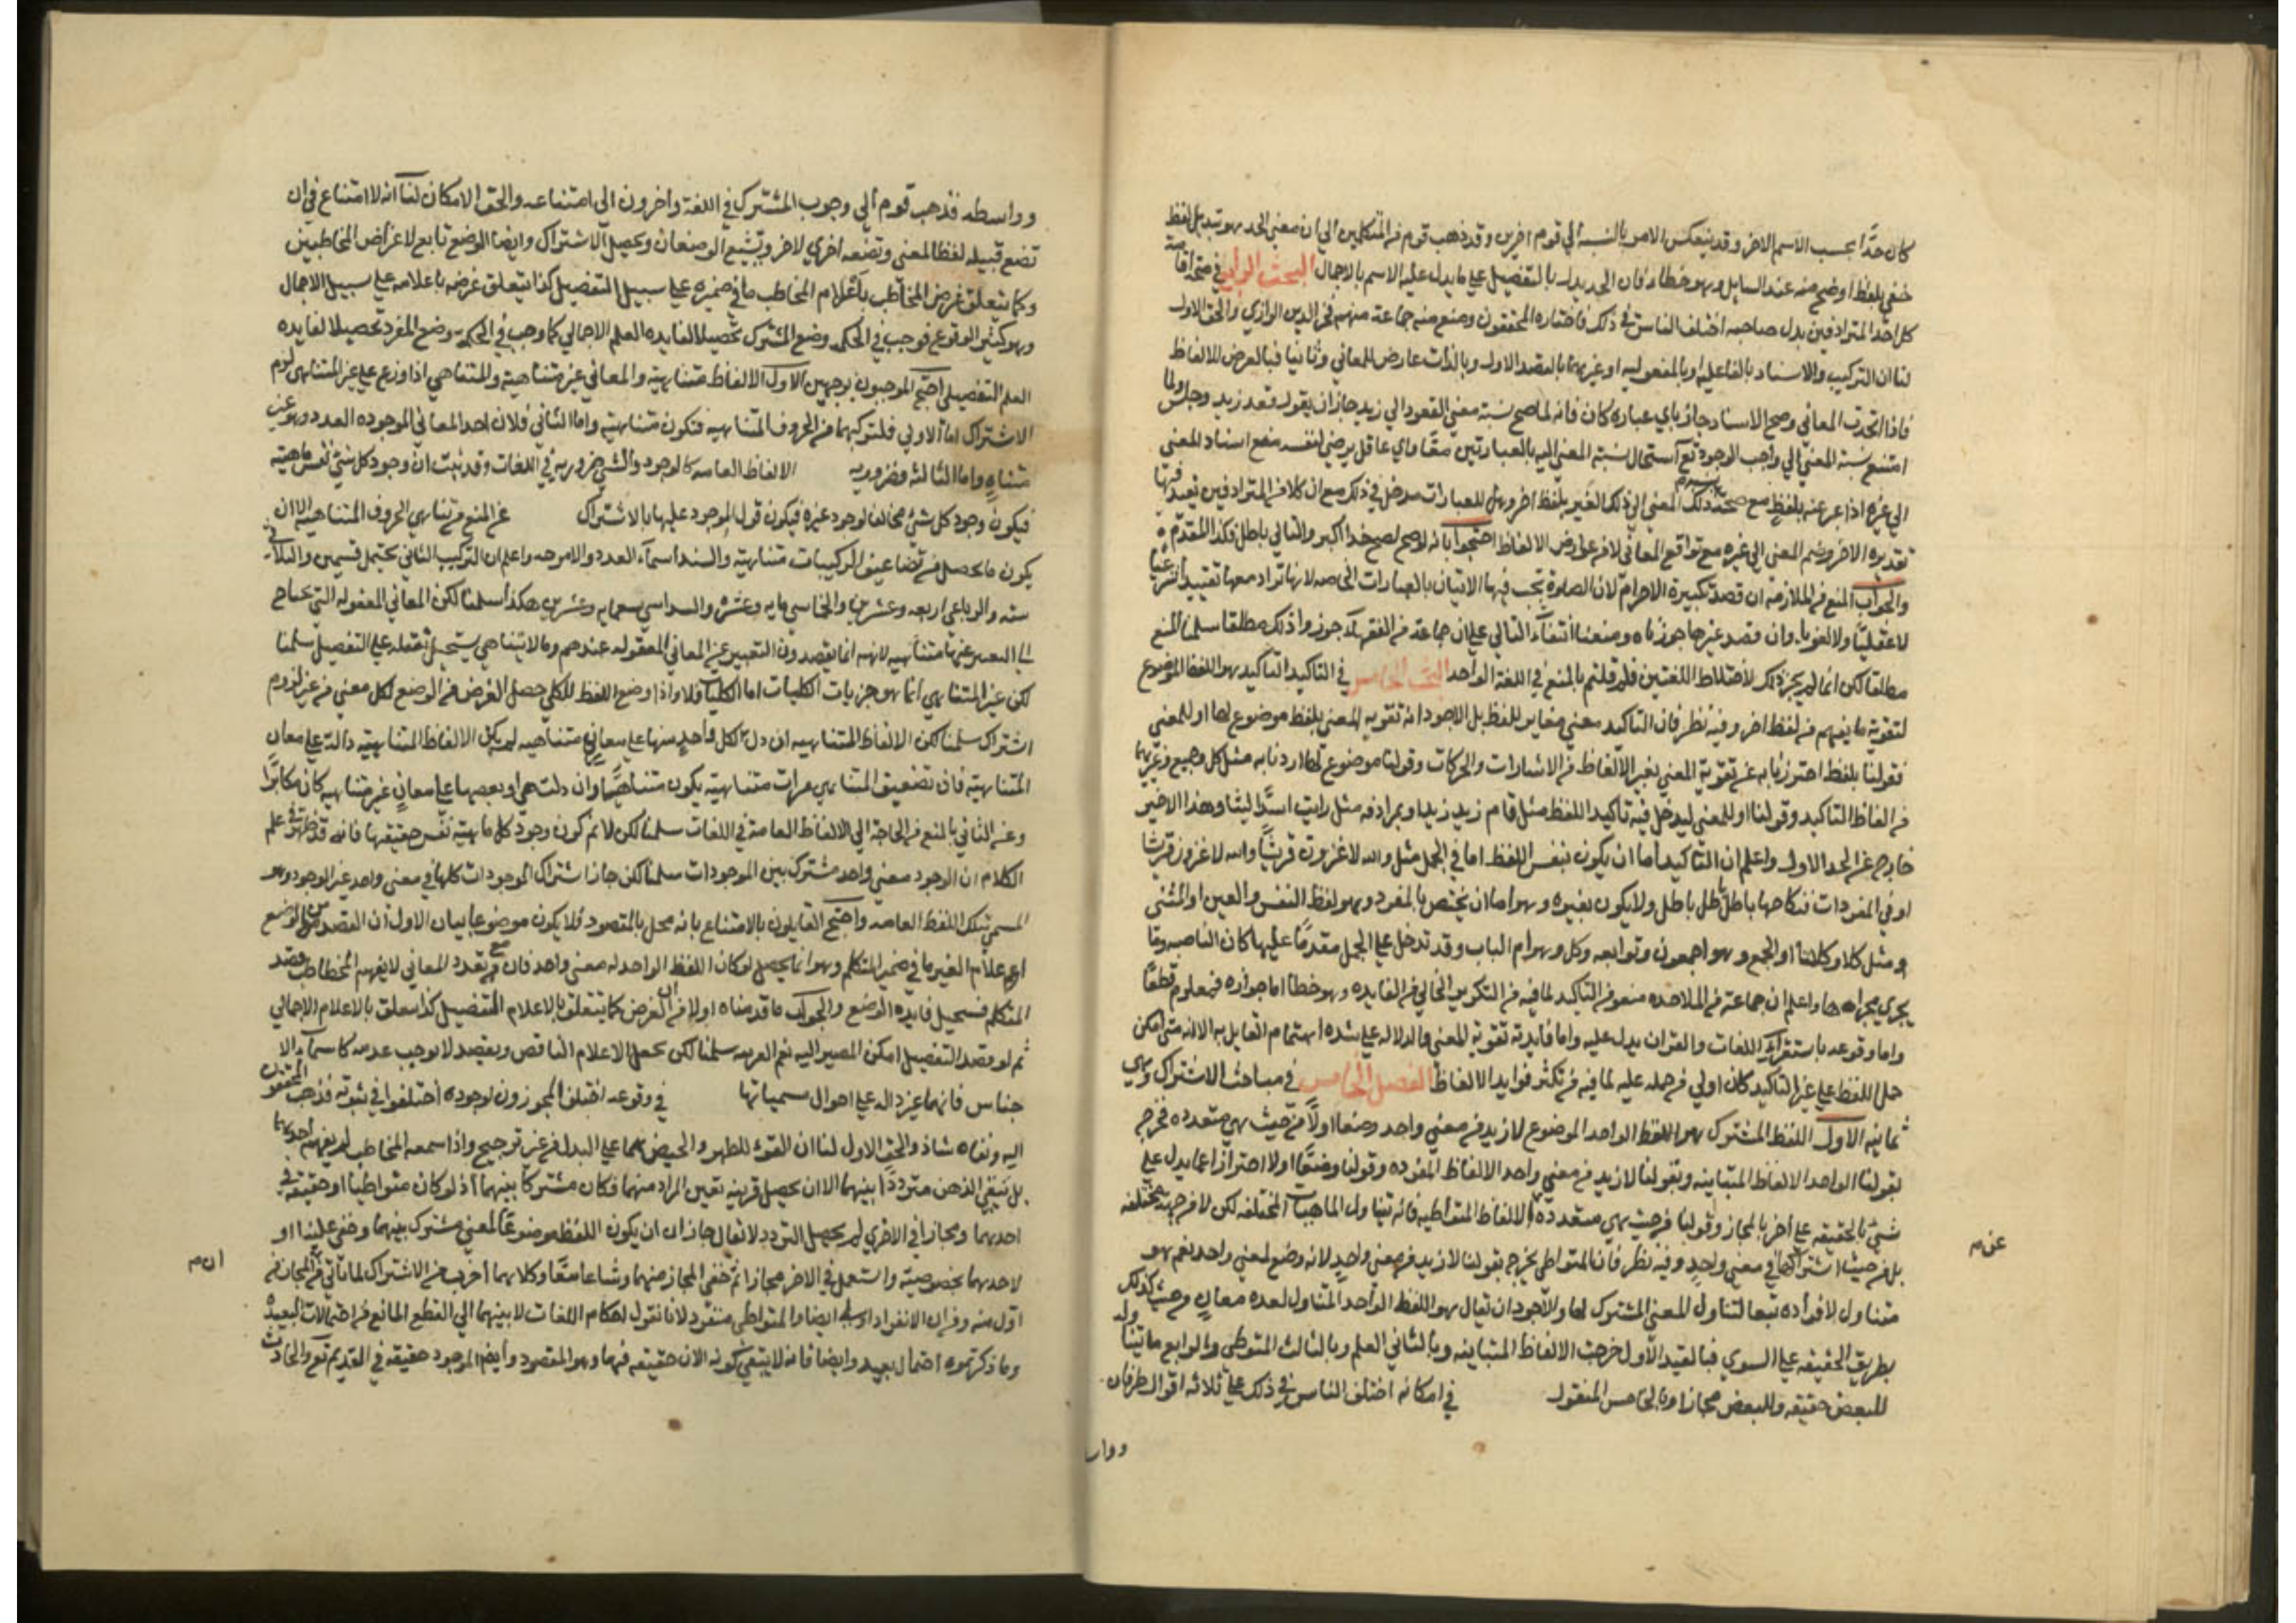 كان حدًّا بحسب الاسم الاخر وقد ينعكس الامر بالنسبة الي قوم اخرين وقد ذهب قوم من المتكلمين الي ان معنى الحد هو تبديل لفظ
خفي بلفظ اوضح منه عند السايل وهو خطاء فان الحد يدل بالتفصيل علي ما يدل عليه الاسم بالاجمال البحث الرابع في صحة اقامة
كل احد المترادفين بدل صاحبه اختلف الناس في ذلك فاختاره المحققون ومنع منه جماعة منهم فخر الدين الرازي والحق الاول
لنا ان التركيب والاسناد بالفاعلية او بالمفعولية او غيرهما بالقصد الاول وبالذات عارض للمعاني وثانيا فبالعرض للالفاظ
فاذا اتحدت المعاني وصح الاسناد جاز باي عبارة كان فانه لما صح نسبة معنى القعود الي زيد جاز ان يقول قعد زيد وجلس ولما
امتنع نسبة المعني الي واجب الوجود تع استحال نسبة المعني اليه بالعبارتين معًا واي عاقل يرضي لنفسه منع اسناد المعنى
الي غيره اذا عبر عنه بلفظ مع صحة ذلك المعنى الي ذلك الغير بلفظ اخر وهل للعبارات مدخل في ذلك مع ان كلا من المترادفين تفيد فيها
تفيده الاخر وضم المعنى الي غيره مع تواقع المعاني لا من عوارض الالفاظ احتجوا بانه لو صح لصح خدا اكبر والتالي باطل فكذا المقدم
والجواب المنع من الملازمة ان قصد تكبيرة الاحرام لان الصلوة يجب فيها الاتيان بالعبارات الخاصه لانها تراد معها تقييد شرعيا
لا عقليًا ولا لغويا وان قصد غيرها جوزناه ومنعنا انتفاء التالي علي ان جماعة من الفقهاء جوزوا ذلك مطلقا سلمنا المنع
مطلقا لكن انما لم يجز ذلك لاختلاط اللغتين فلم قلتم بالمنع في اللغة الواحد البحث الخامس في التاكيد التاكيد هو اللفظ الموضوع
لتقوية ما يفهم من لفظ اخر وفيه نظر فان التاكيد معني مغاير للفظ بل الاجود انه تقوية المعنى بلفظ موضوع لها او للمعنى
فقولنا بلفظ احترزنا به عن تقوية المعني بغير الالفاظ من الاشارات والحركات وقولنا موضوع لها اردنا به مثل كل وجميع وغيرهما
من الفاظ التاكيد وقولنا او للمعني ليدخل فيه تاكيد اللفظ مثل قام زيد زيد او بمرادفه مثل رايت اسدًا ليثا وهذا الاخير
خارج عن الحد الاول واعلم ان التاكيد اما ان يكون بنفس اللفظ اما في الجمل مثل والله لاغزون قريشًا والله لاغزون قريشا
او في المفردات فنكاحها باطل باطل باطل ولا يكون بغيره وهو اما ان يختص بالمفرد وهو لفظ النفس والعين او المثنى
ومثل كلا وكلتا او الجمع وهو اجمعون وتوابعه وكل وهو ام الباب وقد تدخل علي الجمل مقدمًا عليها كان الناصبه وما
يجري مجراها واعلم ان جماعة من الملاحده منعوا من التاكيد لما فيه من التكرير الخالي من الفايده وهو خطأ اما جوازه فمعلوم قطعًا
واما وقوعه باستقراء اللغات والقران يدل عليه واما فايدته تقوية المعني والدلاله علي شده اهتمام القايل به الا انه متى امكن
حمل اللفظ علي غير التاكيد كان اولي من حمله عليه لما فيه من تكثر فوايد الالفاظ الفصل الخامس في مباحث الاشتراك وهي
ثمانيه الاول اللفظ المشترك هو اللفظ الواحد الموضوع لازيد من معني واحد وضعا اولًا من حيث هي متعدده فخرج
بقولنا الواحد الالفاظ المتباينه وبقولنا لازيد من معني واحد الالفاظ المفرده وقولنا وضعًا اولا احترازا عما يدل علي
شيئ بالحقيقه علي اخر بالمجاز وقولنا من حيث هي متعدده الالفاظ المتواطيه فانه تتناول الماهيات المختلفه لكن لا من جهة مختلفه
بل من حيث اشتراكها في معني واحد وفيه نظر فان المتواطي يخرج بقولنا لازيد من معني واحد لانه وضع لمعني واحد نعم هو
عن م
متناول لافراده تبعا لتناول المعني المشترك لها والاجود ان يقال هو اللفظ الواحد المتناول لعده معان من حيث كذلك
بطريق الحقيقه علي السوي فبالقيد الاول خرجت الالفاظ المتباينه وبالثاني العلم وبالثالث المتواطي والرابع ما يتناوله
للبعض حقيقه وللبعض مجازا وبالخامس المنقول في امكانه اختلف الناس في ذلك علي ثلاثه اقوال طرفان
وواسطه فذهب قوم الي وجوب المشترك في اللغة واخرون الى امتناعه والحق الامكان لنا انه لا امتناع في ان
تضع قبيله لفظا لمعني وتضعه اخري لاخر ويشيع الوضعان ويحصل الاشتراك وايضا الوضع تابع لاغراض المخاطبين
وكما يتعلق غرض المخاطب باعلام المخاطب ما في ضميره علي سبيل التفصيل كذا يتعلق غرضه باعلامه علي سبيل الاجمال
وهو كثير الوقوع فوجب في الحكمه وضع المشترك تحصيلا لفايده العلم الاجمالي كما وجب في الحكمه وضع المفرد تحصيلا لفايده
العلم التفصيلي احتج الموجبون بوجهين الاول الالفاظ متناهية والمعاني غير متناهية والمتناهي اذا وزع علي غير المتناهي لزم
الاشتراك اما الاولي فلتركبها من الحروف المتناهيه فتكون متناهيه واما الثاني فلان احد المعاني الموجوده العدد وهو غير
متناهٍ واما الثالثه فضروريه الالفاظ العامه كالوجود والشي ضروريه في اللغات وقد ثبت ان وجود كل شيئ نفس ماهيته
فيكون وجود كل شيئ مخالفا لوجود غيره فيكون قول الموجود عليها بالاشتراك عن المنع من تناهي الحروف المتناهيه الا ان
يكون ما يحصل من تضاعيف التركيبات متناهية والسند اسماء العدد والامزجه واعلم ان التركيب الثنايي يحتمل قسمين والثلاثي
سته والرباعي اربعه وعشرين والخماسي مايه وعشره والسداسي سبعمايه وعشرين هكذا سلمنا لكن المعاني المعقوله التي يحتاج
الي التعبير عنها متناهيه لانهم انما يقصدون التعبير عن المعاني المعقوله عندهم وما لا يتناهي يستحيل تعقله علي التفصيل سلمنا
لكن غير المتناهي انما هو جزيات الكليات اما الكليات فلا واذا وضع اللفظ للكلي حصل الغرض من الوضع لكل معني من غير لزوم
اشتراك سلمنا لكن الالفاظ المتناهيه ان دل كل واحد منها علي معان متناهيه لم يكن الالفاظ المتناهيه دالة علي معان
المتناهية فان تضعيف المتناهي مرات متناهية يكون متناهيًا وان دلت هي او بعضها علي معانٍ غير متناهيه كان مكابرًا
وعن الثاني بالمنع من الحاجة الي الالفاظ العامة في اللغات سلمنا لكن لا نم كون وجود كل ماهية نفس حقيقتها فانه قد ظهر في علم
الكلام ان الوجود معني واحد مشترك بين الموجودات سلمنا لكن جاز اشتراك الموجودات كلها في معني واحد غير الوجود وهو
المسمي بتلك اللفظ العامه واحتج القايلون بالامتناع بانه مخل بالمقصود فلا يكون موضوعا بيان الاول ان القصد من الوضع
اعلام الغير ما في ضمير المتكلم وهو انما يحصل لو كان اللفظ الواحد له معني واحد فان مع تعدد المعاني لا يفهم المخاطب قصد
المتكلم فيستحيل فايده الوضع والجواب ما قدمناه اولا من ان الغرض كما يتعلق بالاعلام التفصيل كذا يتعلق بالاعلام الاجمالي
ثم لو قصد التفصيل امكن المصير اليه بضم القرينه سلمنا لكن يحصل الاعلام الناقص ويقصد لا يوجب عدمه كاسماء الا
جناس فانها غير داله علي احوال مسمياتها في وقوعه اختلف المجوزون لوجوده اختلفوا في ثبوته فذهب المحققون
اليه ونفاه شاذ والحق الاول لنا ان القرء للطهر والحيض معا علي البدل من غير ترجيح واذا سمعه المخاطب لم يفهم احدهما
بل يبقي الذهن مترددًا بينهما الا ان يحصل قرينه تعين المراد منهما فكان مشتركا بينهما اذ لو كان متواطيا او حقيقه في
احدهما ومجازا في الاخري لم يحصل التردد لا يقال جاز ان يكون اللفظ موضوعًا لمعني مشترك بينهما وخفي علينا او
لاحدهما بخصوصيته واستعمل في الاخر مجازا ثم خفي المجاز منهما وشاعا معًا وكلاهما اقرب من الاشتراك لما ياتي من ان المجاز
ان م
اولي منه وفان الانفراد اولي ايضا والمتواطي منفرد لانا نقول احكام اللغات لا ينتهي الي القطع المانع من احتمالات البعيده
وما ذكرتموه احتمال بعيد وايضا فانه لا ينفي كونه الان حقيقه فيها وهو المقصود وايضا الموجود حقيقه في القديم تع والحادث